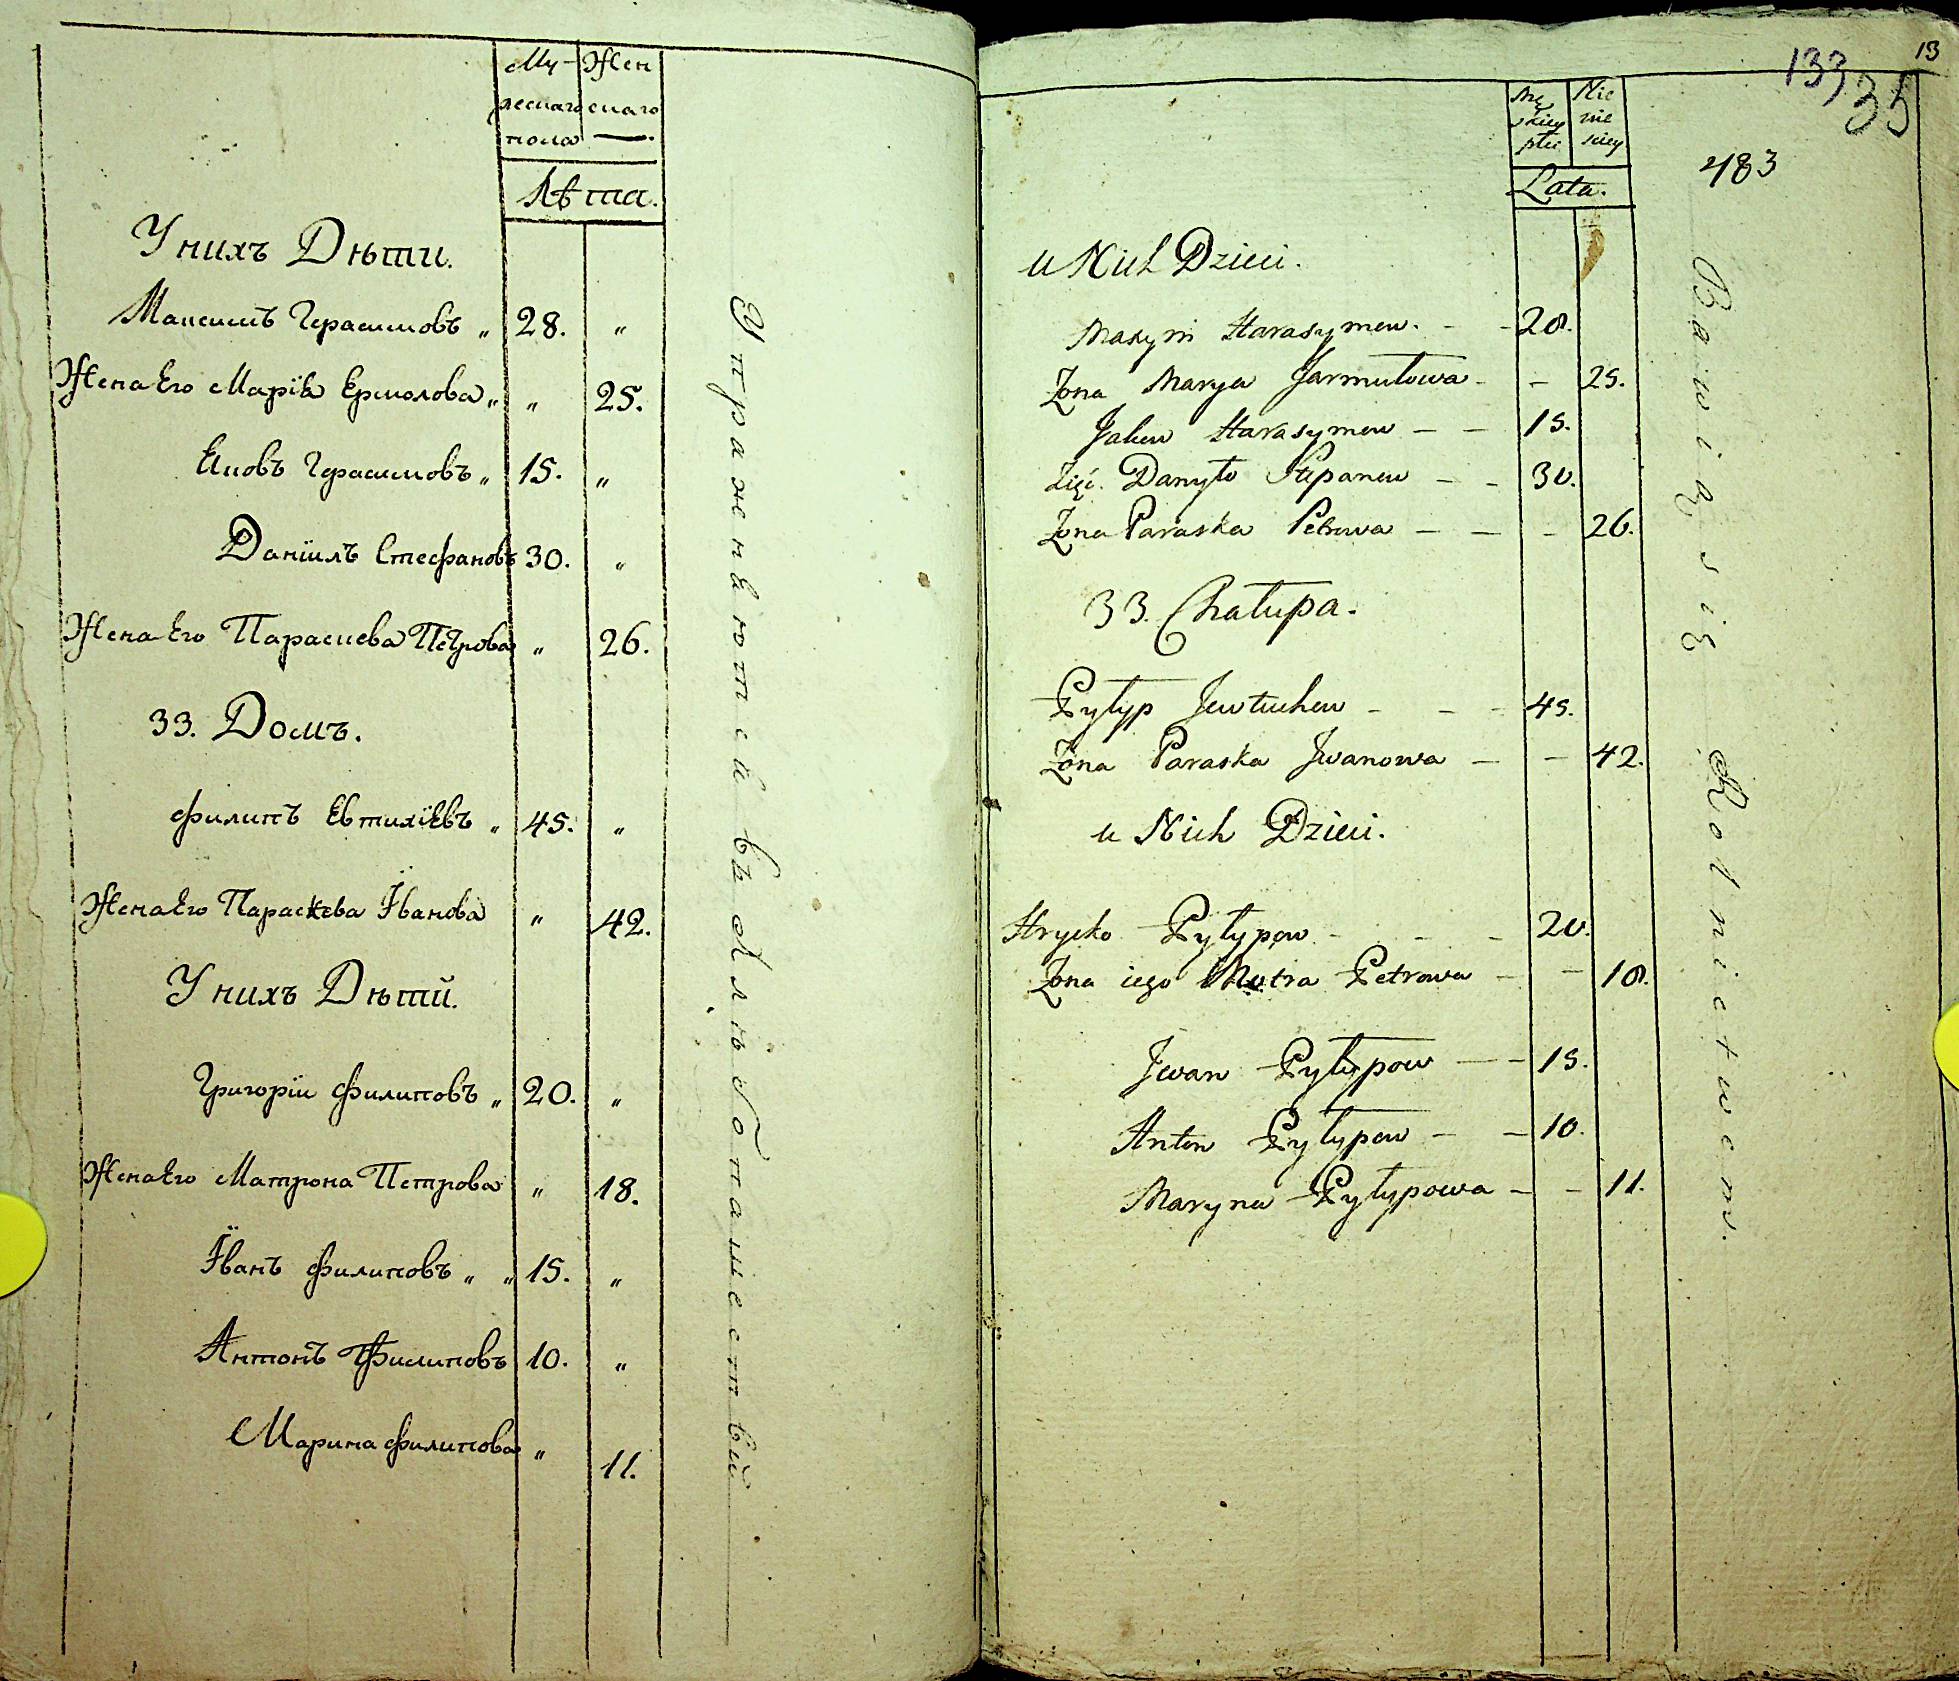 Му- Жен
жескаго скаго
пола —.
Лѣта.
У нихъ Дѣти.
Максимъ Герасимовъ „ 28. „
Жена Его Марія Ермолова „ „ 25.
Яковъ Герасимовъ „ 15. „
Даніилъ Стефановъ 30. „
Жена Его Параскева Петрова „ 26.
33. Домъ.
Филипъ Евтихіевъ „ 45. „
Жена Его Параскева Іванова „ 42.
У нихъ Дѣтй.
Григоріи Филиповъ „ 20. „
Жена Его Матрона Петрова „ 18.
Іванъ Филиповъ „ „ 15. „
Антонъ Филиповъ 10. „
Марина Филипова „ 11.
Упражняются въ хлѣбопашествѣ
13
133
35
483
Mę Nie
skiey wie
płci sciey
Lata.
u Nich Dzieci.
Maxym Harasymow. - - 28.
Żona Marya Jarmułowa - - 25.
Jakow Harasymow — — 15.
Zięć. Danyło Stepanow — - 30.
Żona Paraska Petrowa — — - 26.
33. Chałupa.
Pyłyp Jewtuchow - - - 45.
Żona Paraska Jwanowa — - 42.
u Nich Dzieci.
Hrycko Pyłypow - - - 20.
Żona iego Motra Petrowa - - 18.
Jwan Pyłypow — - 15.
Anton Pyłypow - - 10.
Maryna Pyłypowa - - 11.
Bawią się Rolnictwem.